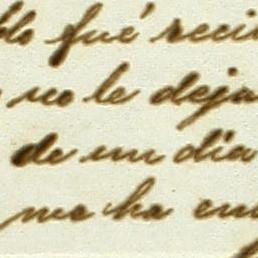 do fué reci
no le deja
de un dia
me ha en